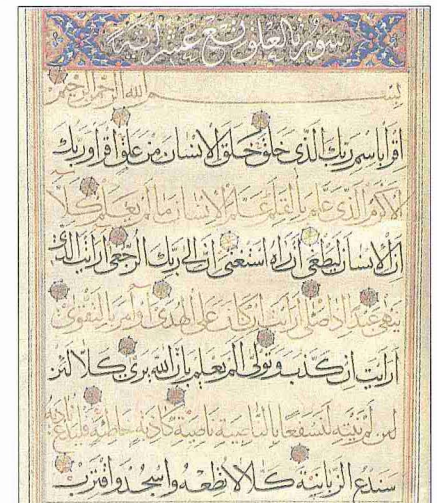 سورة العلق تسع عشر آية
بسم الله الرحمن الرحيم
اقرأ باسم ربك الذي خلق خلق الانسان من علق اقرأ وربك
الاكرم الذي علم بالقلم علم الانسان ما لم يعلم كلا
ان الانسان ليطغى ان رآه استغنى ان الى ربك الرجعى ارأيت الذي
ينهى عبدا اذا صلى ارأيت ان كان على الهدى او امر بالتقوى
ارأيت ان كذب وتولى الم يعلم بان الله يرى كلا لئن
لم ينته لنسفعا بالناصية ناصية كاذبة خاطئة فليدع ناديه
سندع الزبانية كلا لا تطعه واسجد واقترب